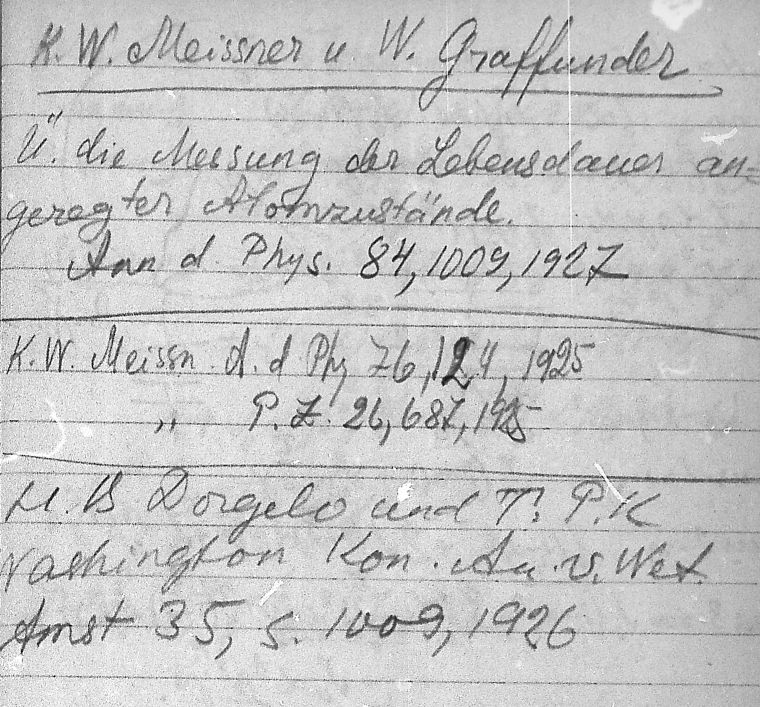 K. W. Meissner u W. Graffunder
Ü. die Messung der Lebensdauer an-
geregter Atomzustände.
Ann d Phys. 84, 1009, 1927
K. W. Meissn. A. d Phy 76, 124, 1925
,, P. Z. 26, 687, 1925
H. B Dorgelo und T. P. K
Washington Kon. Ak. v. Wet.
Amst 35, S. 1009, 1926